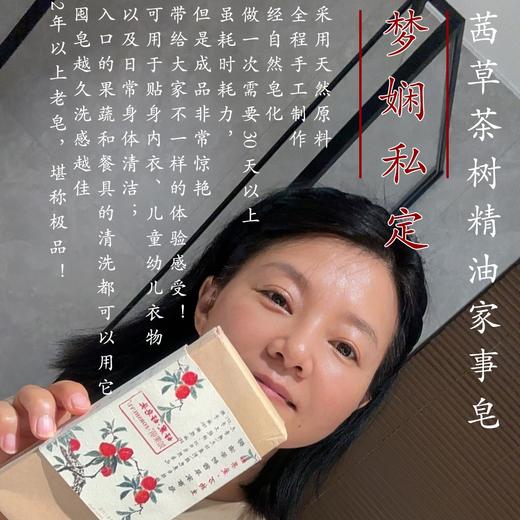 茜草茶树精油家事皂
梦娴私定
采用天然原料
全程手工制作
经自然皂化
做一次需要30天以上
虽耗时耗力，
但是成品非常惊艳
带给大家不一样的体验感受！
可用于贴身内衣、儿童幼儿衣物
以及日常身体清洁；
入口的果蔬和餐具的清洗都可以用它
囤皂越久洗感越佳
2年以上老皂，堪称极品！